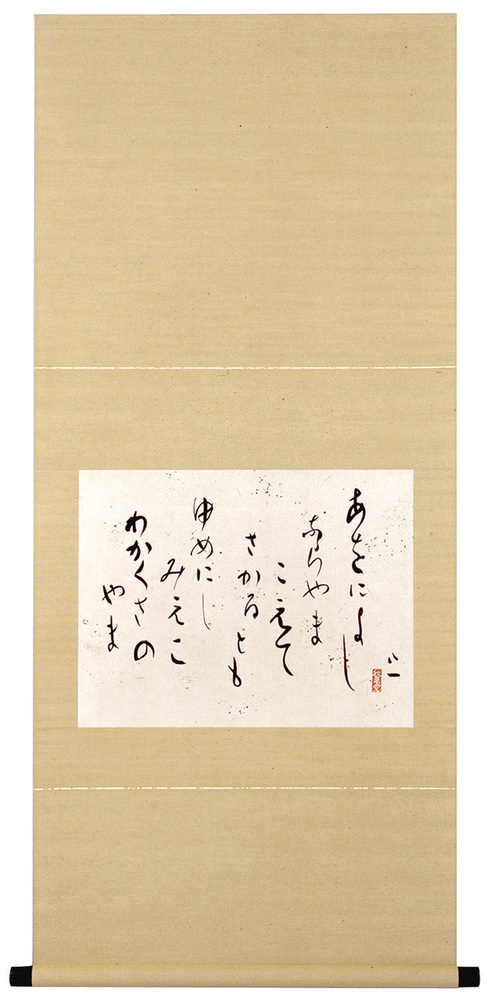 八一
あをによし
ならやま
こえて
さかるとも
ゆめにし
みえこ
わかくさの
やま